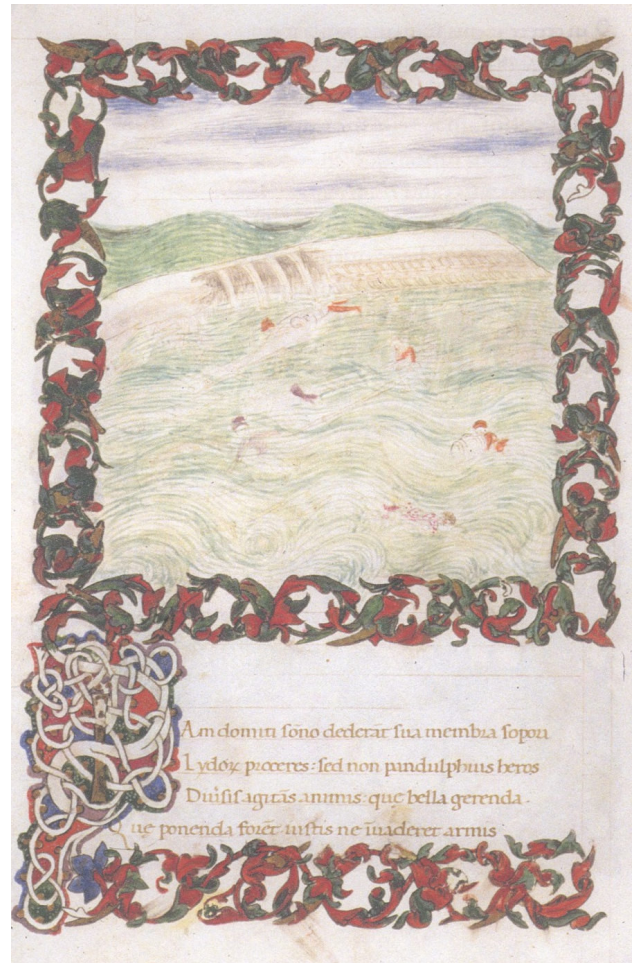 Am domiti sōno dederāt sua membra sopori
Lydoꝝ proceres: sed non pandulphius heros
Diuisis agitās animis: que bella gerenda.
Que ponenda forēt iustis ne īuaderet armis